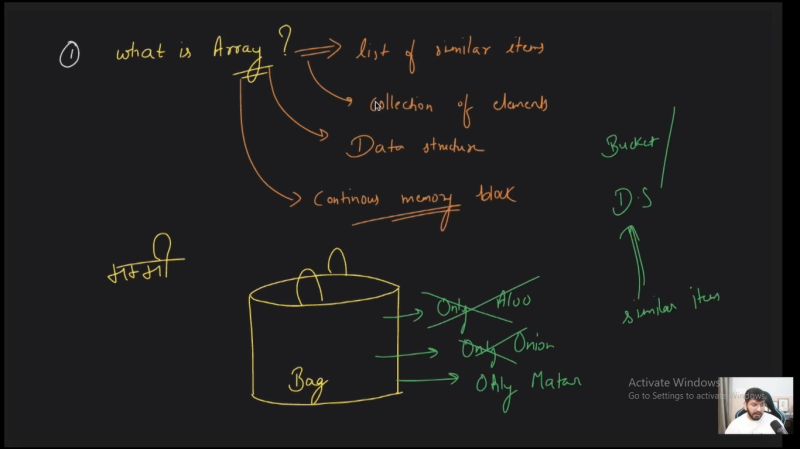 ① what is Array ? => list of similar items
collection of elements
Data structure
Continous memory block
Bucket
D.S
similar item
मम्मी
Bag
Only Aloo
Only Onion
Only Matar
Activate Windows
Go to Settings to activate Windows.